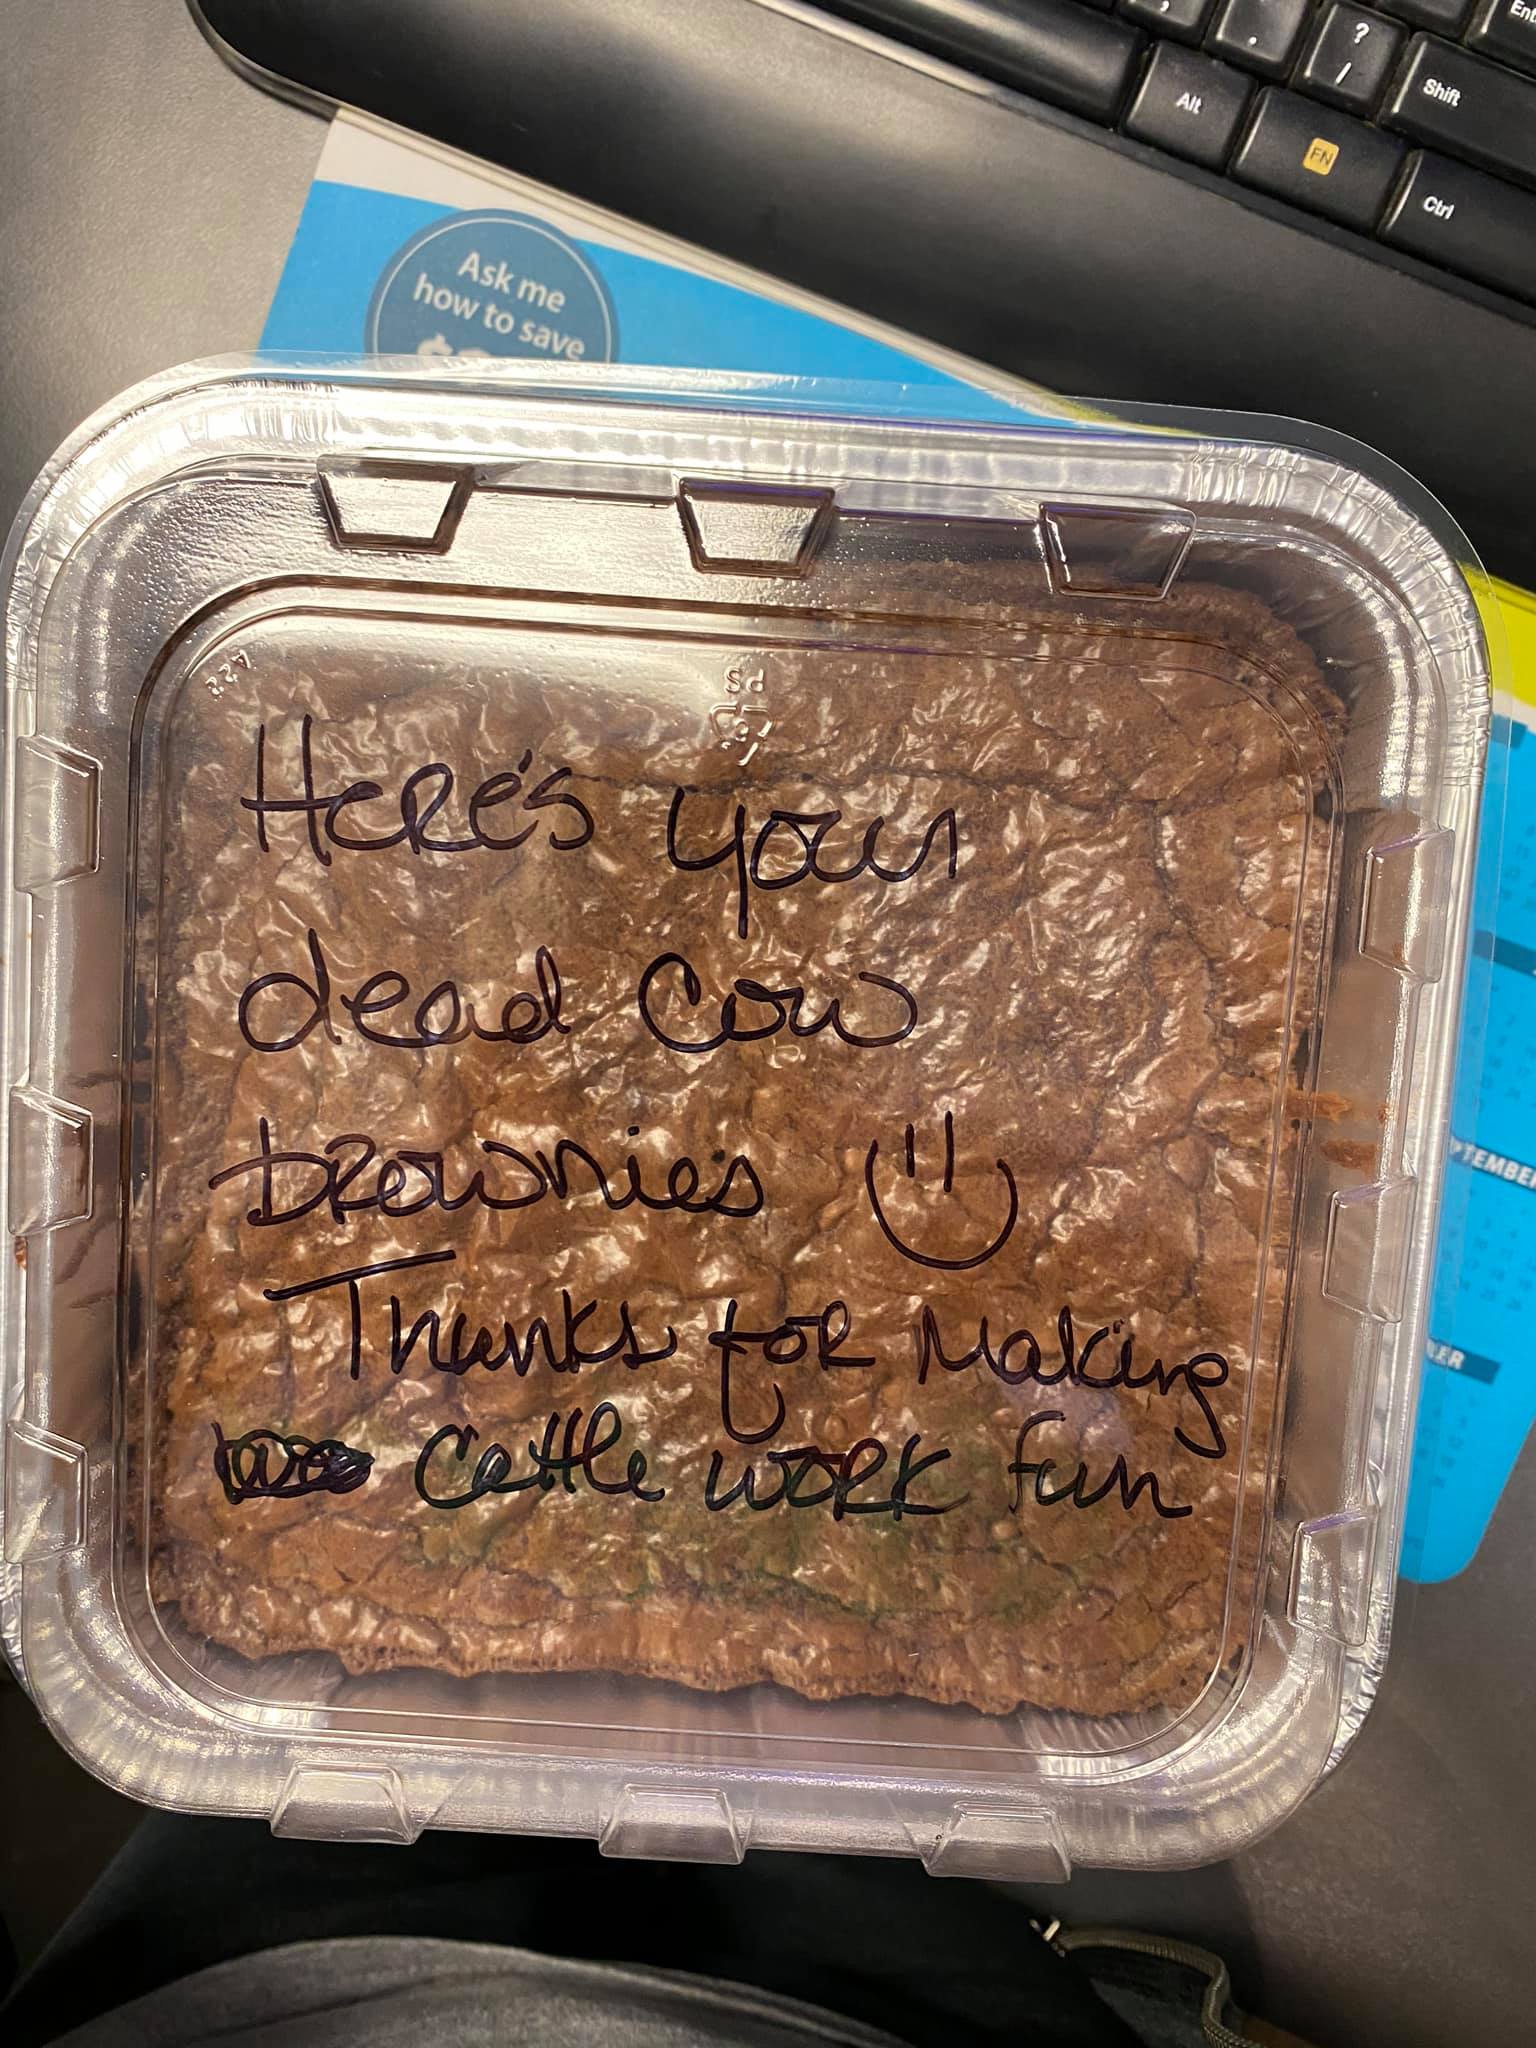 Ent
?
/
Shift
Alt
FN
Ctrl
Ask me
how to save
422
PS
Here's your
dead cow
brownies
Thanks for making
cattle work fun